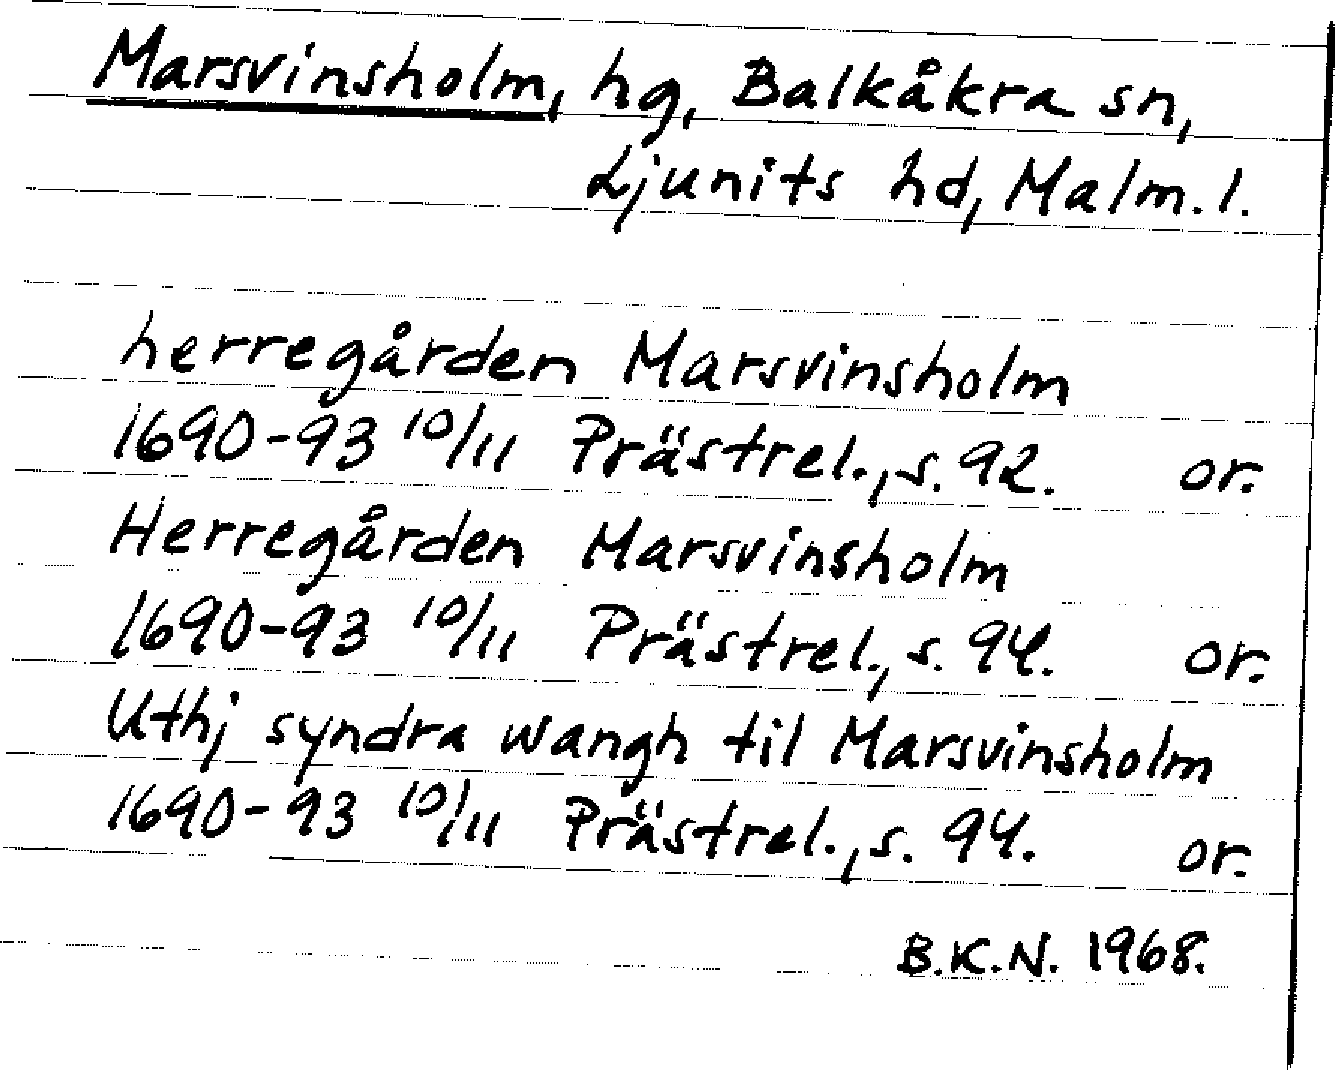 Marsvinsholm, hg, Balkåkra sn,
Ljunits hd, Malm. l.
herregården Marsvinsholm
1690-93 10/11 Prästrel., s. 92. or.
Herregården Marsvinsholm
1690-93 10/11 Prästrel., s. 94. or.
Uthj syndra wangh til Marsvinsholm
1690-93 10/11 Prästrel., s. 94. or.
B.K.N. 1968.